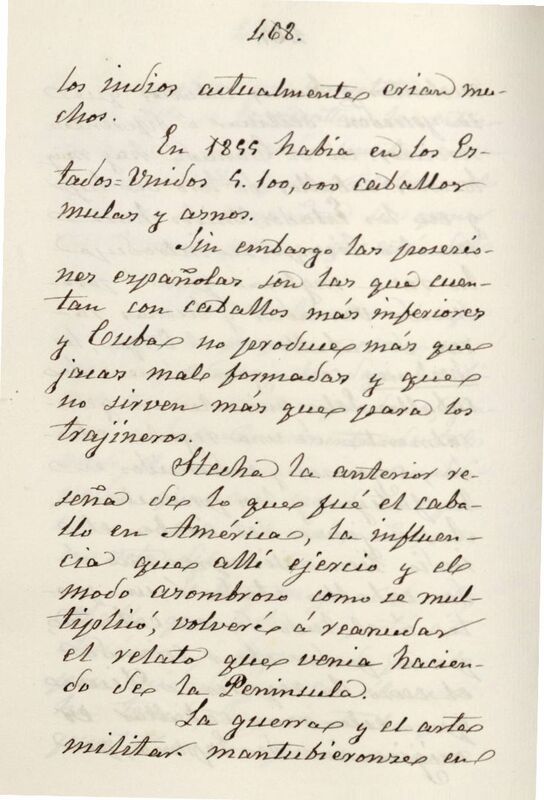 468.
los indios actualmente crian mu-
chos.
En 1855 habia en los Es-
tados=Unidos 5.100,000 caballos
mulas y asnos.
Sin embargo las posesio-
nes españolas son las que cuen-
tan con caballos más inferiores
y Cuba no produce más que
jacas mal formadas y que
no sirven más que para los
trajineros.
Hecha la anterior re-
seña de lo que fué el caba-
llo en América, la influen-
cia que allí ejercio y el
modo asombroso como se mul-
tiplicó, volveré á reanudar
el relato que venia hacien-
do de la Peninsula.
La guerra y el arte
militar mantubieronse en